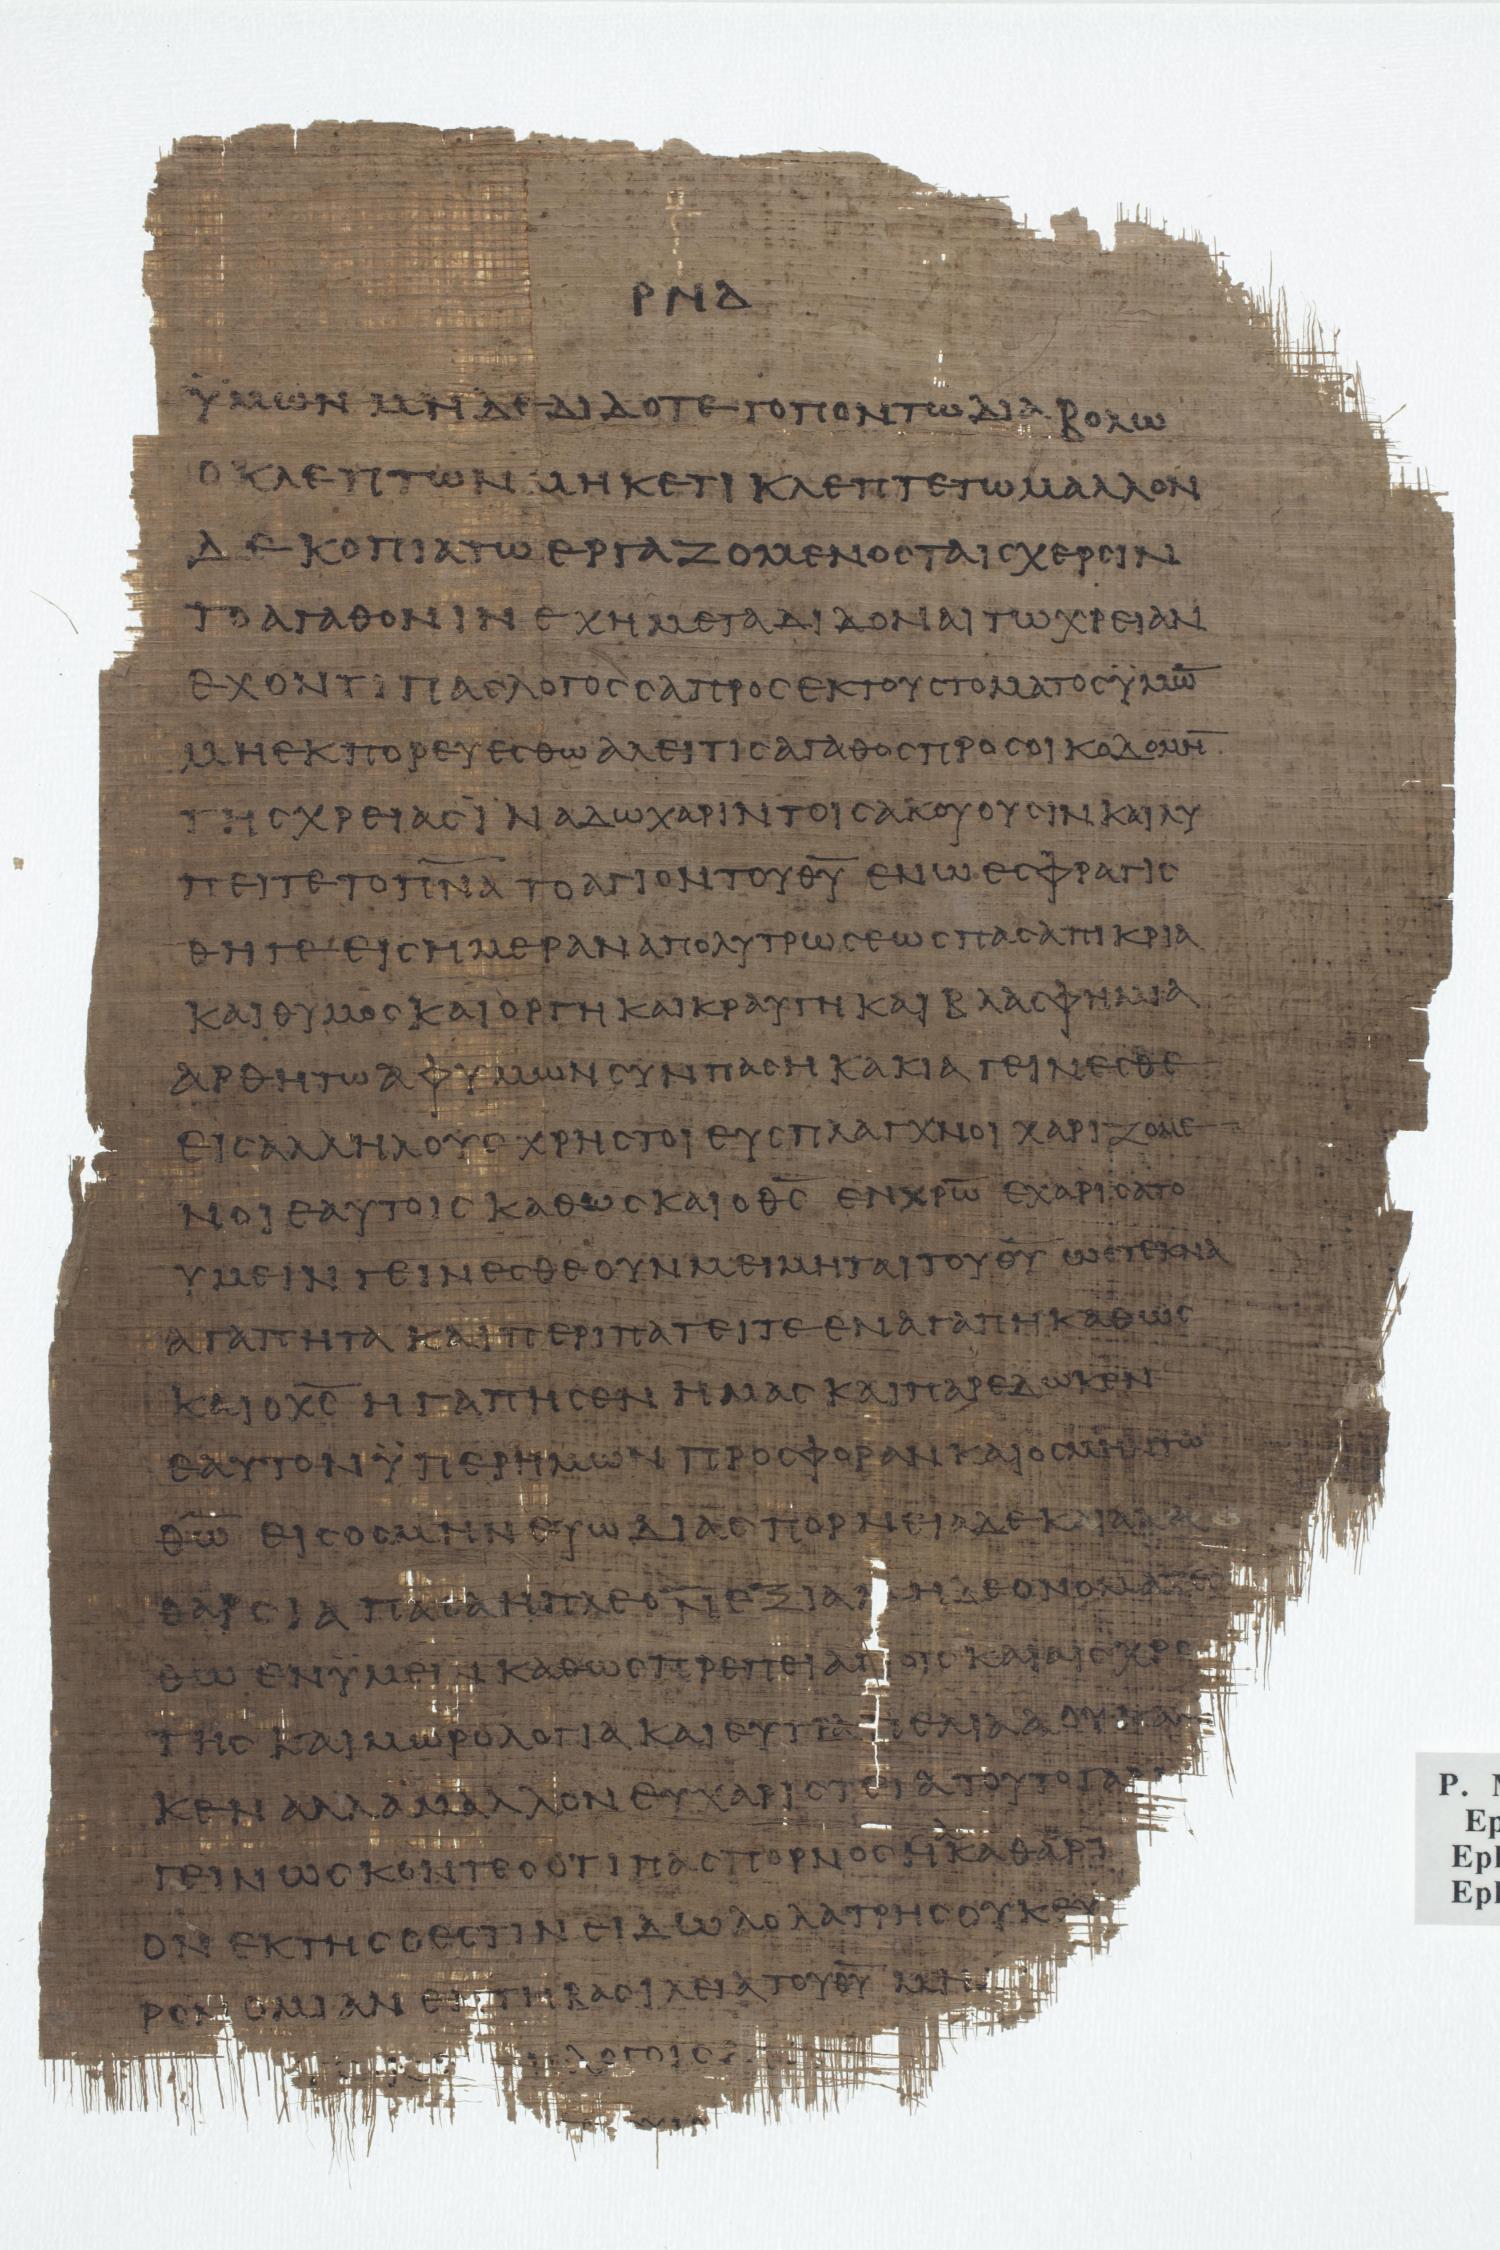 ΡΝΔ
ϋμων μηδε διδοτε τοπον τω διαβολω
ο κλεπτων μηκετι κλεπτετω μαλλον
δε κοπιατω εργαζομενος ταις χερσιν
το αγαθον ιν εχη μεταδιδοναι τω χρειαν
εχοντι πας λογος σαπρος εκ του στοματος ϋμω̅
μη εκπορευεσθω αλ ει τις αγαθος προς οικοδομη̅
της χρειας ϊνα δω χαριν τοις ακουουσιν και λυ
πειτε το π̅ν̅α̅ το αγιον του θ̅υ̅ εν ω εσφραγισ
θητε εις ημεραν απολυτρωσεως πασα πικρια
και θυμος και οργη και κραυγη και βλασφημια
αρθητω αφ υμων συν παση κακια γεινεσθε
εις αλληλους χρηστοι ευσπλαγχνοι χαριζομε
νοι εαυτοις καθως και ο θ̅ς̅ εν χ̅ρ̅ω̅ εχαρισατο
υμειν γεινεσθε ουν μειμηται του θ̅υ̅ ως τεκνα
αγαπητα και περιπατειτε εν αγαπη καθως
και ο χ̅ς̅ ηγαπησεν ημας και παρεδωκεν
εαυτον ϋπερ ημων προσφοραν και οσμην τω
θ̅ω̅ εις οσμην ευωδιας πορνεια δε και ακα
θαρσια πασα η πλεονεξια μηδε ονομαζεσ
θω εν ϋμειν καθως πρεπει αγιοις και αισχρο
της και μωρολογια και ευτραπελια α ουκ αν
κεν αλλα μαλλον ευχαριστεια τουτο γαρ
γεινωσκοντες οτι πας πορνος η ακαθαρ
ον εκτης ο εστιν ειδωλολατρης ουκ
ρονομιαν εν τη βασιλεια του θ̅υ̅ μη
λογοις